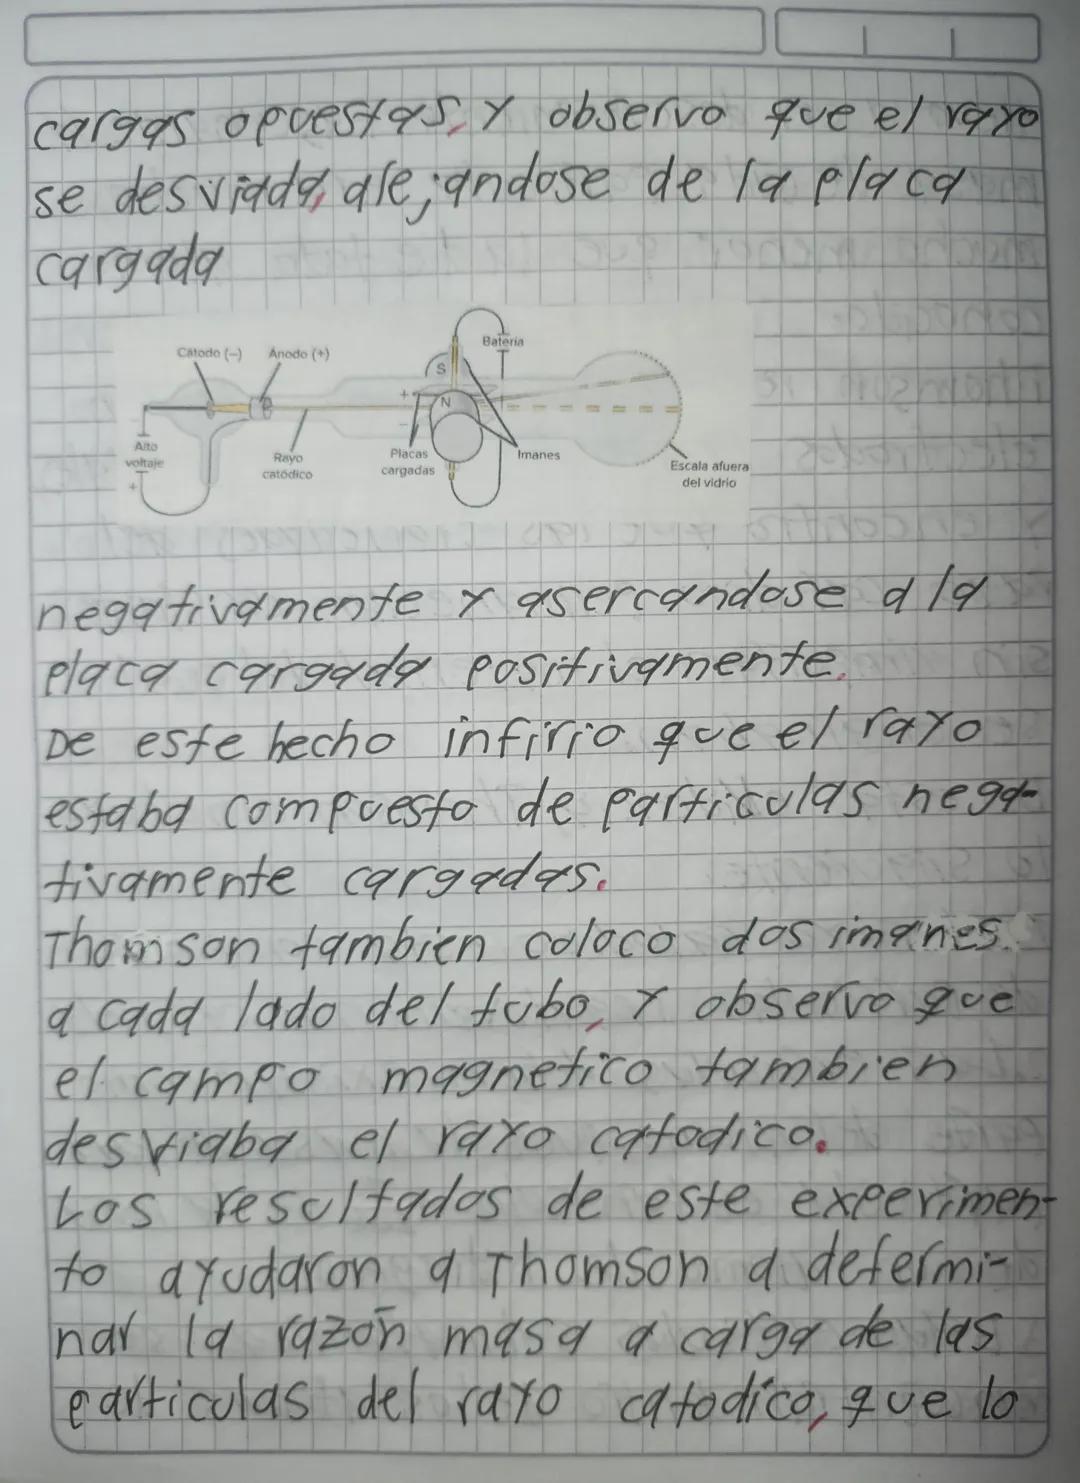 cargas opuestas, y observo que el rayo
se desviada, alejandose de la placa
cargada
Cátodo (-)
Ánodo (+)
Batería
S
+
N
-
Alto
voltaje
+
Rayo
catódico
Placas
cargadas
Imanes
Escala afuera
del vidrio
negativamente y asercandose a la
placa cargada positivamente.
De este hecho infirio que el rayo
estaba compuesto de particulas nega-
tivamente cargadas.
Thomson tambien coloco dos imanes
a cada lado del tubo, y observo que
el campo magnetico tambien
desviaba el rayo catodico.
Los resultados de este experimen-
to ayudaron a Thomson a determi-
nar la razón masa a carga de las
particulas del rayo catodico, que lo